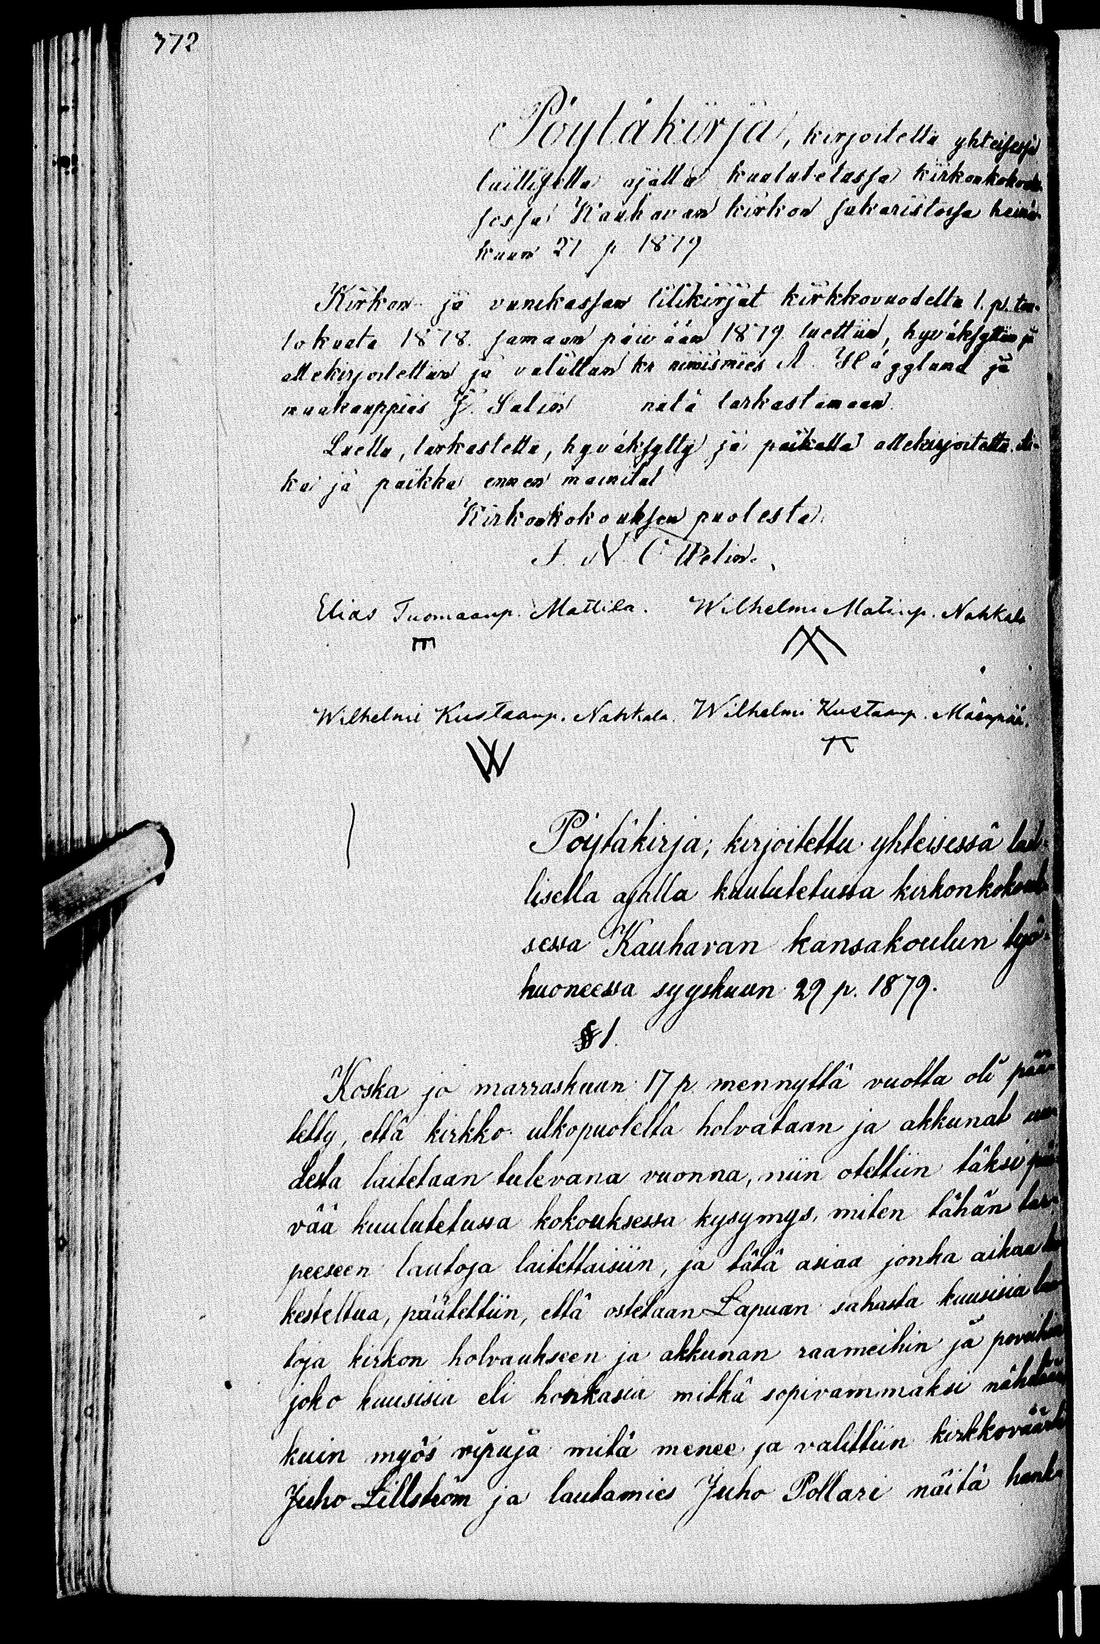 772
Pöytäkirja, kirjoitettu yhteisessä
laillisella ajalla kuulutetussa kirkonkokouk-
sessa Kauhavan kirkon sakaristossa heinä-
kuun 27 p 1879
Kirkon ja vaivikassan tilikirjat kirkkovuodelta 1. p. tou-
kokuuta 1878 samaan päivään 1879 luettiin, hyväksyttiin ja
allekirjoitettiin ja valittiin kr nimismies A. Hägglund ja
maakauppias J. Salin niitä tarkastamaan.
Luettu, tarkastettu, hyväksytty ja paikalla allekirjoitettu. Ai-
ka ja paikka ennen mainitut
Kirkonkokouksen puolesta:
J. N.
Elias Tuomaanp. Mattila. Wilhelmi Matinp. Nahkala
Wilhelmi Kustaanp. Nahkala. Wilhelmi Kustaanp. Mäenpää.
Pöytäkirja, kirjoitettu yhteisessä lail-
lisella ajalla kuulutetussa kirkonkokouk-
sessa Kauhavan kansakoulun työ-
huoneessa syyskuun 29 p. 1879.
§ 1.
Koska jo marraskuun 17 p. mennyttä vuotta oli pää-
tetty, että kirkko ulkopuolelta holvataan ja akkunat uu-
desta laitetaan tulevana vuonna, niin otettiin täksi päi-
vää kuulutetussa kokouksessa kysymys, miten tähän tar-
peeseen lautoja laitettaisiin, ja tätä asiaa jonka aikaa
kesteltua, päätettiin, että ostetaan Lapuan sahasta kuusisia lau-
toja kirkon holvaukseen ja akkunan raameihin ja
joko kuusisia eli honkasia mitkä sopivammaksi nähdään
kuin myös ripuja mitä menee ja valittiin kirkkoväärti
Juho Lillström ja lautamies Juho Pollari näitä hank-